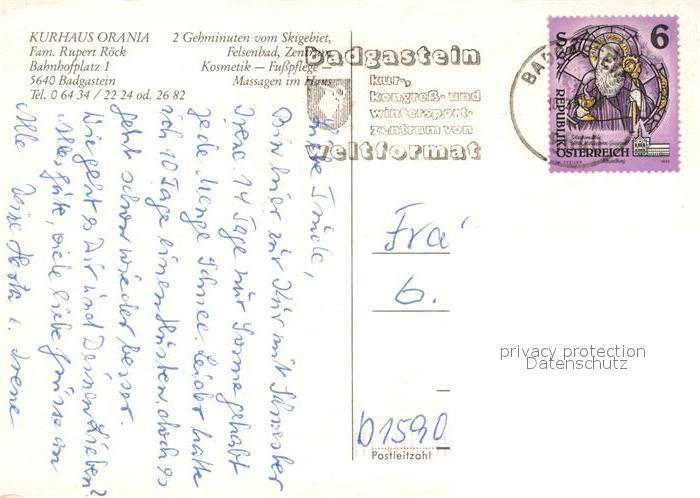 KURHAUS ORANIA
Fam. Rupert Röck
Bahnhofplatz 1
5640 Badgastein
Tel. 0 64 34 / 22 24 od. 26 82
2 Gehminuten vom Skigebiet,
Felsenbad, Zentrum
Kosmetik — Fußpflege —
Massagen im Haus
Badgastein
kur-,
kongreß- und
wintersport-
zentrum von
weltformat
BAD
S 6
REPUBLIK
ÖSTERREICH
Liebe Trude,
Bin hier zur Kur mit Schwester
Irene. 14 Tage nur Sonne gehabt
jede Menge Schnee. Leider hatte
ich 10 Tage einen Husten, doch es
geht schon wieder besser.
Wie geht es Dir und Deinen Lieben?
Alles gute, viele liebe Grüsse an
Alle Deine Herta u. Irene
Fra
6.
D1590
Postleitzahl
privacy protection
Datenschutz